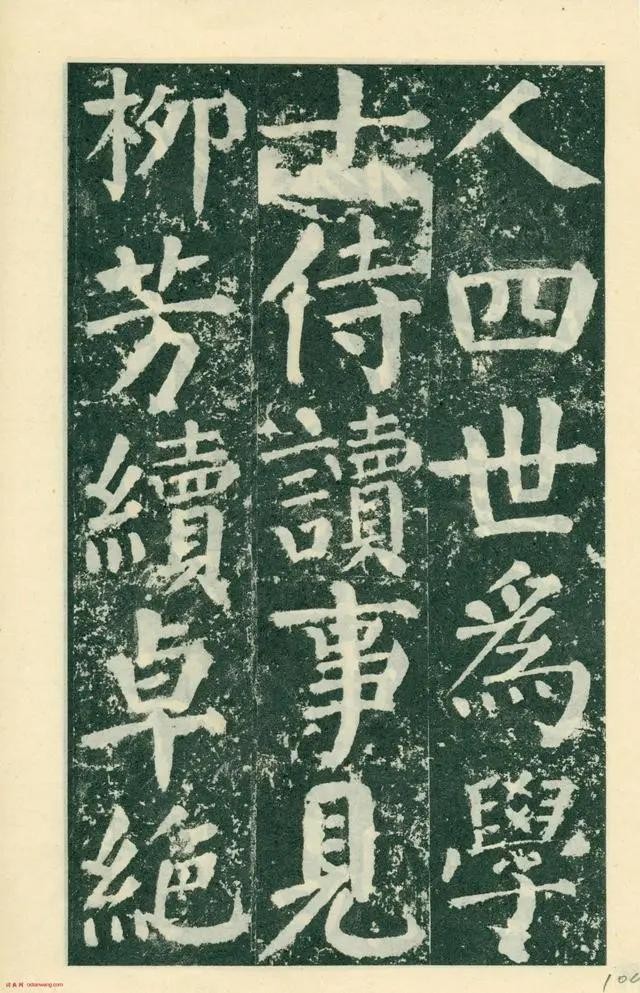 人四世爲學
士侍讀事見
柳芳續卓絕
106